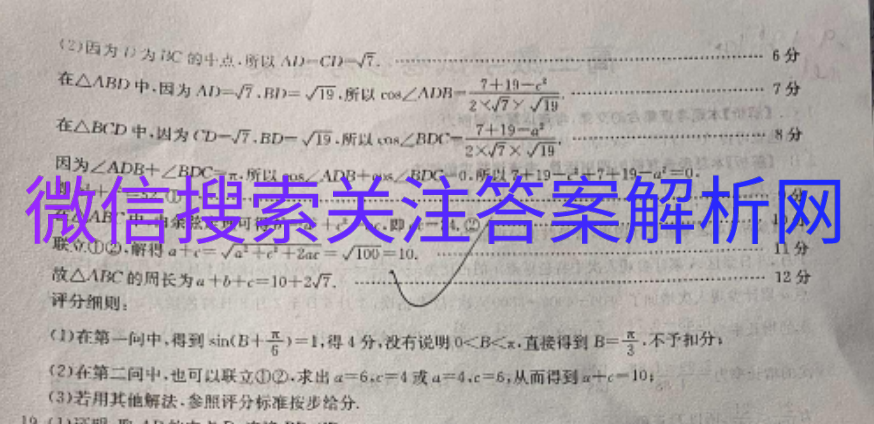 (2)因为D为BC的中点,所以AD=CD=√7. …… 6分
在△ABD中,因为AD=√7,BD=√19,所以cos∠ADB=(7+19-c²)/(2×√7×√19). …… 7分
在△BCD中,因为CD=√7,BD=√19,所以cos∠BDC=(7+19-a²)/(2×√7×√19). …… 8分
因为∠ADB+∠BDC=π,所以cos∠ADB+cos∠BDC=0,所以7+19-c²+7+19-a²=0.
微信搜索关注答案解析网
联立①②,解得a+c=√(a²+c²+2ac)=√100=10. …… 11分
故△ABC的周长为a+b+c=10+2√7. …… 12分
评分细则:
(1)在第一问中,得到sin(B+π/6)=1,得4分,没有说明0<B<π,直接得到B=π/3,不予扣分;
(2)在第二问中,也可以联立①②,求出a=6,c=4或a=4,c=6,从而得到a+c=10;
(3)若用其他解法,参照评分标准按步给分.